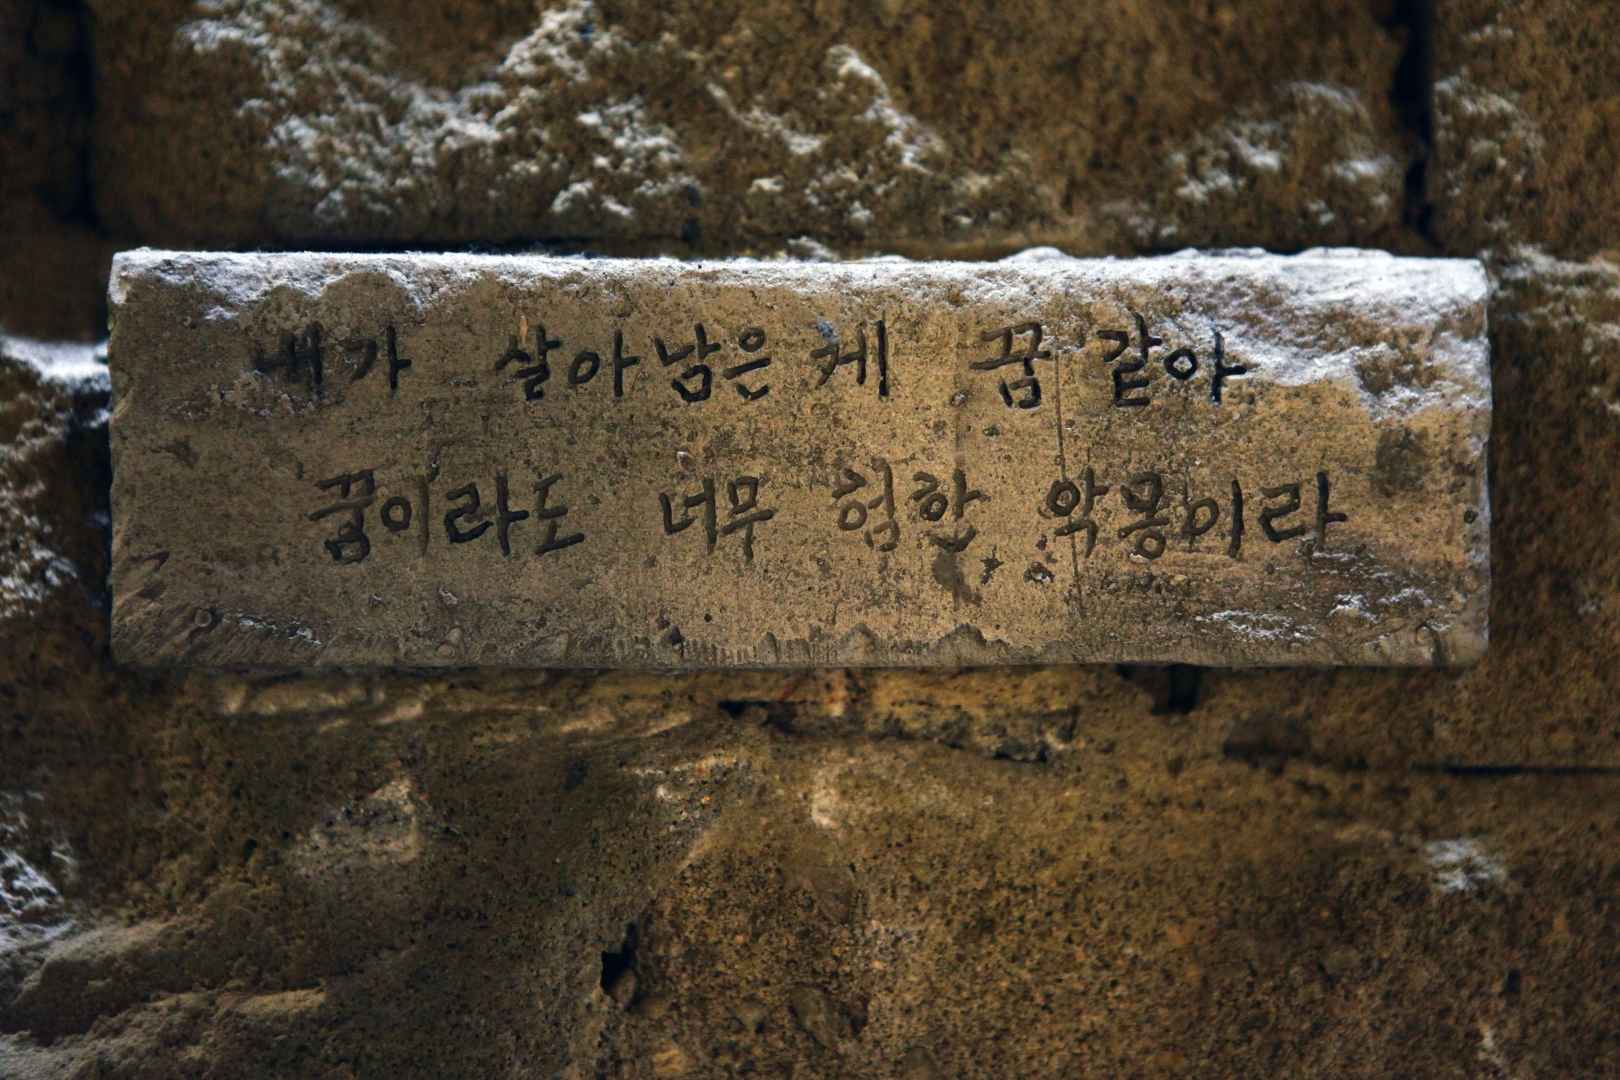 내가 살아남은 게 꿈 같아
꿈이라도 너무 험한 악몽이라